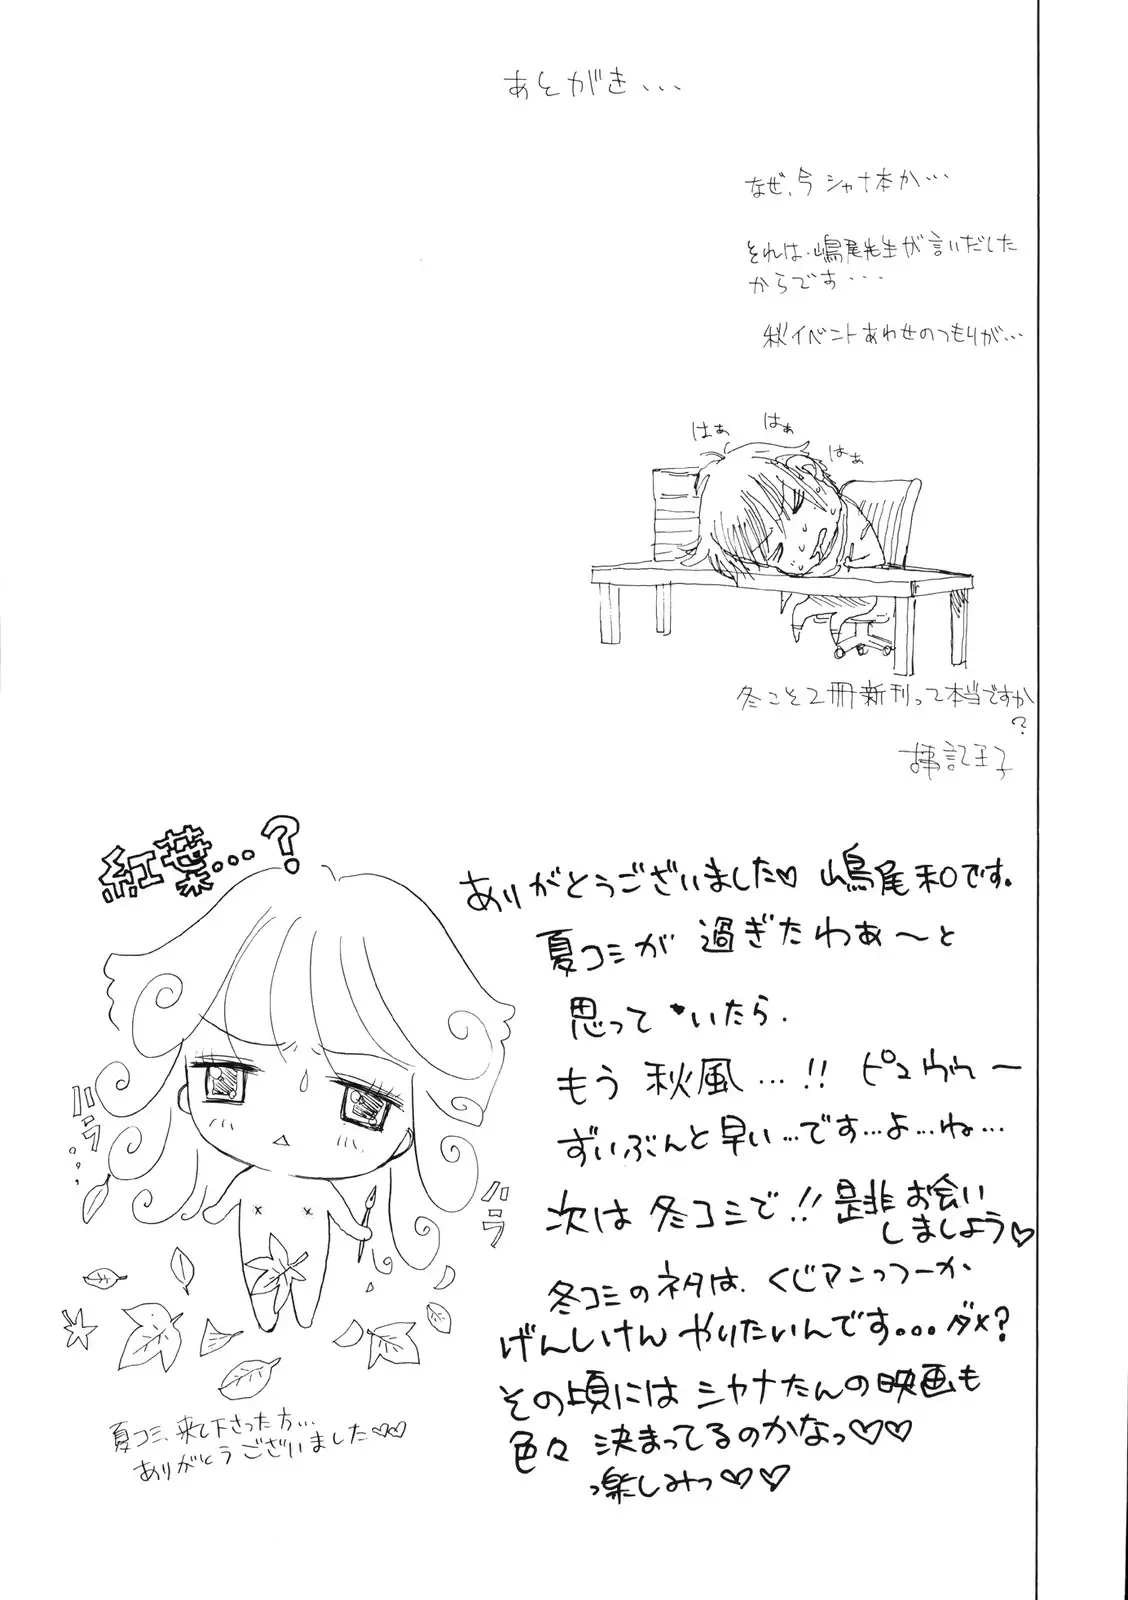 あとがき...
なぜ、今 シャナ本か...
それは、嶋尾先生が言いだした
からです...
秋イベントあわせのつもりが...
はぁ
はぁ
はぁ
冬こそ2冊新刊って本当ですか
?
記王子
紅葉...?
ありがとうございました♡ 嶋尾和です。
夏コミが 過ぎたわぁ〜と
思って いたら.
もう 秋風...!! ピュウゥー
ずいぶんと早い...です...よ...ね...
次は 冬コミで!! 是非お会い
しましょう♡
冬コミのネタは、くじアンっつーか
げんしけん やりたいんです... ダメ?
その頃には シャナたんの映画も
色々 決まってるのかなっ♡♡
っ楽しみっ♡♡
ハラ...
ハラ
夏コミ、来て下さった方...
ありがとうございました♡♡